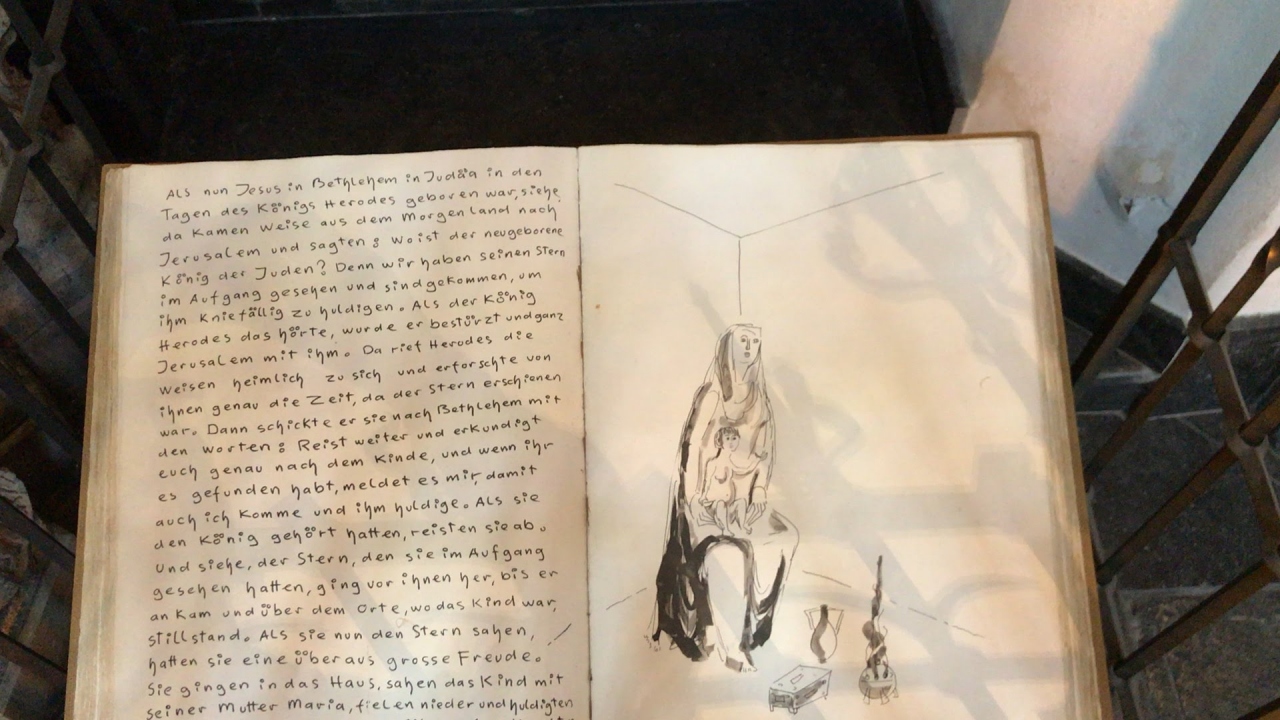 Als nun Jesus in Bethlehem in Judäa in den
Tagen des Königs Herodes geboren war, siehe,
da kamen Weise aus dem Morgenland nach
Jerusalem und sagten: Wo ist der neugeborene
König der Juden? Denn wir haben seinen Stern
im Aufgang gesehen und sind gekommen, um
ihm kniefällig zu huldigen. Als der König
Herodes das hörte, wurde er bestürzt und ganz
Jerusalem mit ihm. Da rief Herodes die
Weisen heimlich zu sich und erforschte von
ihnen genau die Zeit, da der Stern erschienen
war. Dann schickte er sie nach Bethlehem mit
den Worten: Reist weiter und erkundigt
euch genau nach dem Kinde, und wenn ihr
es gefunden habt, meldet es mir, damit
auch ich komme und ihm huldige. Als sie
den König gehört hatten, reisten sie ab.
Und siehe, der Stern, den sie im Aufgang
gesehen hatten, ging vor ihnen her, bis er
ankam und über dem Orte, wo das Kind war,
stillstand. Als sie nun den Stern sahen,
hatten sie eine überaus grosse Freude.
Sie gingen in das Haus, sahen das Kind mit
seiner Mutter Maria, fielen nieder und huldigten